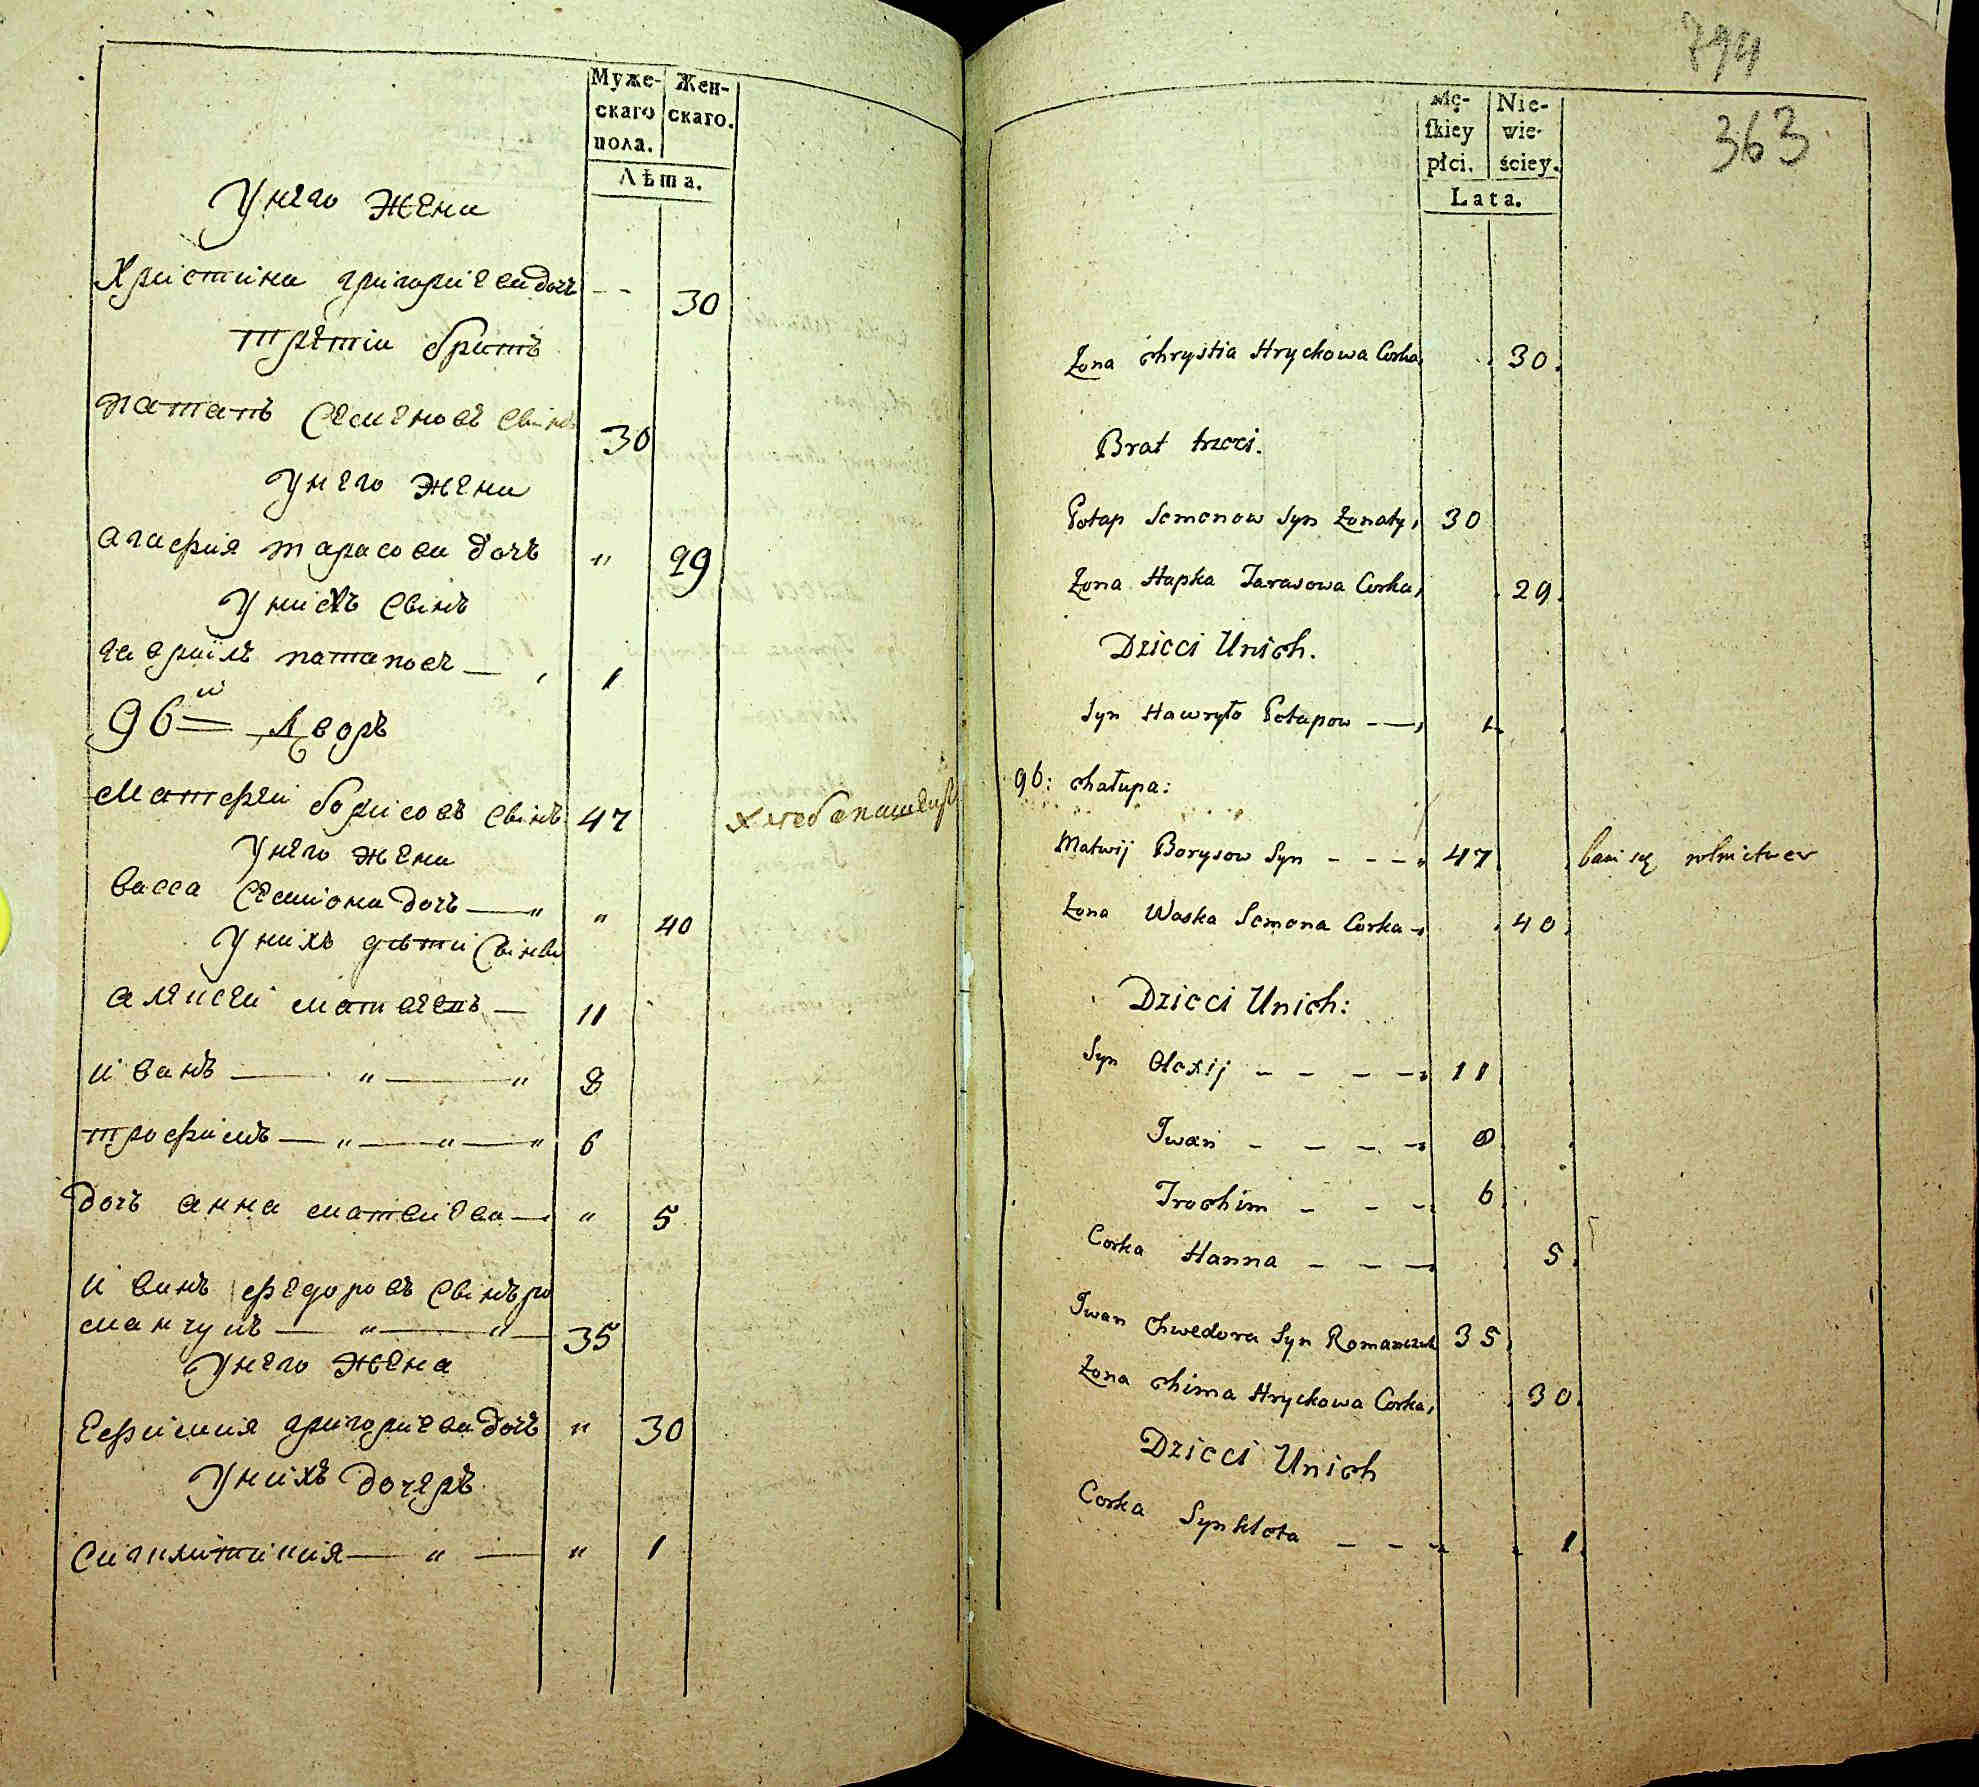 Муже-
скаго
пола.
Жен-
скаго.
Лѣта.
У него жена
Христина григориева дочъ - - 30
третiи братъ
патапъ Семеновъ Синъ 30
У него жена
агафия тарасова дочъ " 29
У нихъ Синъ
гаврiилъ патаповъ — , 1
96й Дворъ
Матфеи борисовъ Синъ 47 хлебопашецъ
У него жена
васса Семиона дочъ — " " 40
У нихъ дѣти Сини
алексеи матвеевъ — 11
иванъ — " — " 8
трофимъ — " — " — " 6
дочъ анна матвиева — " 5
иванъ федоровъ Синъ ро
манчукъ — " — " — 35
У него жена
Ефимия григориева дочъ " 30
У нихъ дочеръ
— " — " 1
794
363
Mę-
skiey
płci.
Nie-
wie-
ściey.
Lata.
Żona Chrystia Hryckowa Corka, 30.
Brat trzeci.
Potap Semenow Syn Żonaty, 30
Żona Hapka Tarasowa Corka, 29.
Dzieci Unich.
Syn Hawryło Potapow - —, 1.
96: Chałupa:
Matwij Borysow Syn - - - „ 47 bawi się rolnictwem
Żona Waska Semena Corka -, 40.
Dzieci Unich:
Syn Olexij - - - -, 11
Iwan - - - -, 8
Trochim - - -, 6
Corka Hanna - - —, 5.
Iwan Chwedora Syn Romanczuk 35.
Żona Chima Hryckowa Corka, 30.
Dzieci Unich
Corka Synkleta - - -, 1.